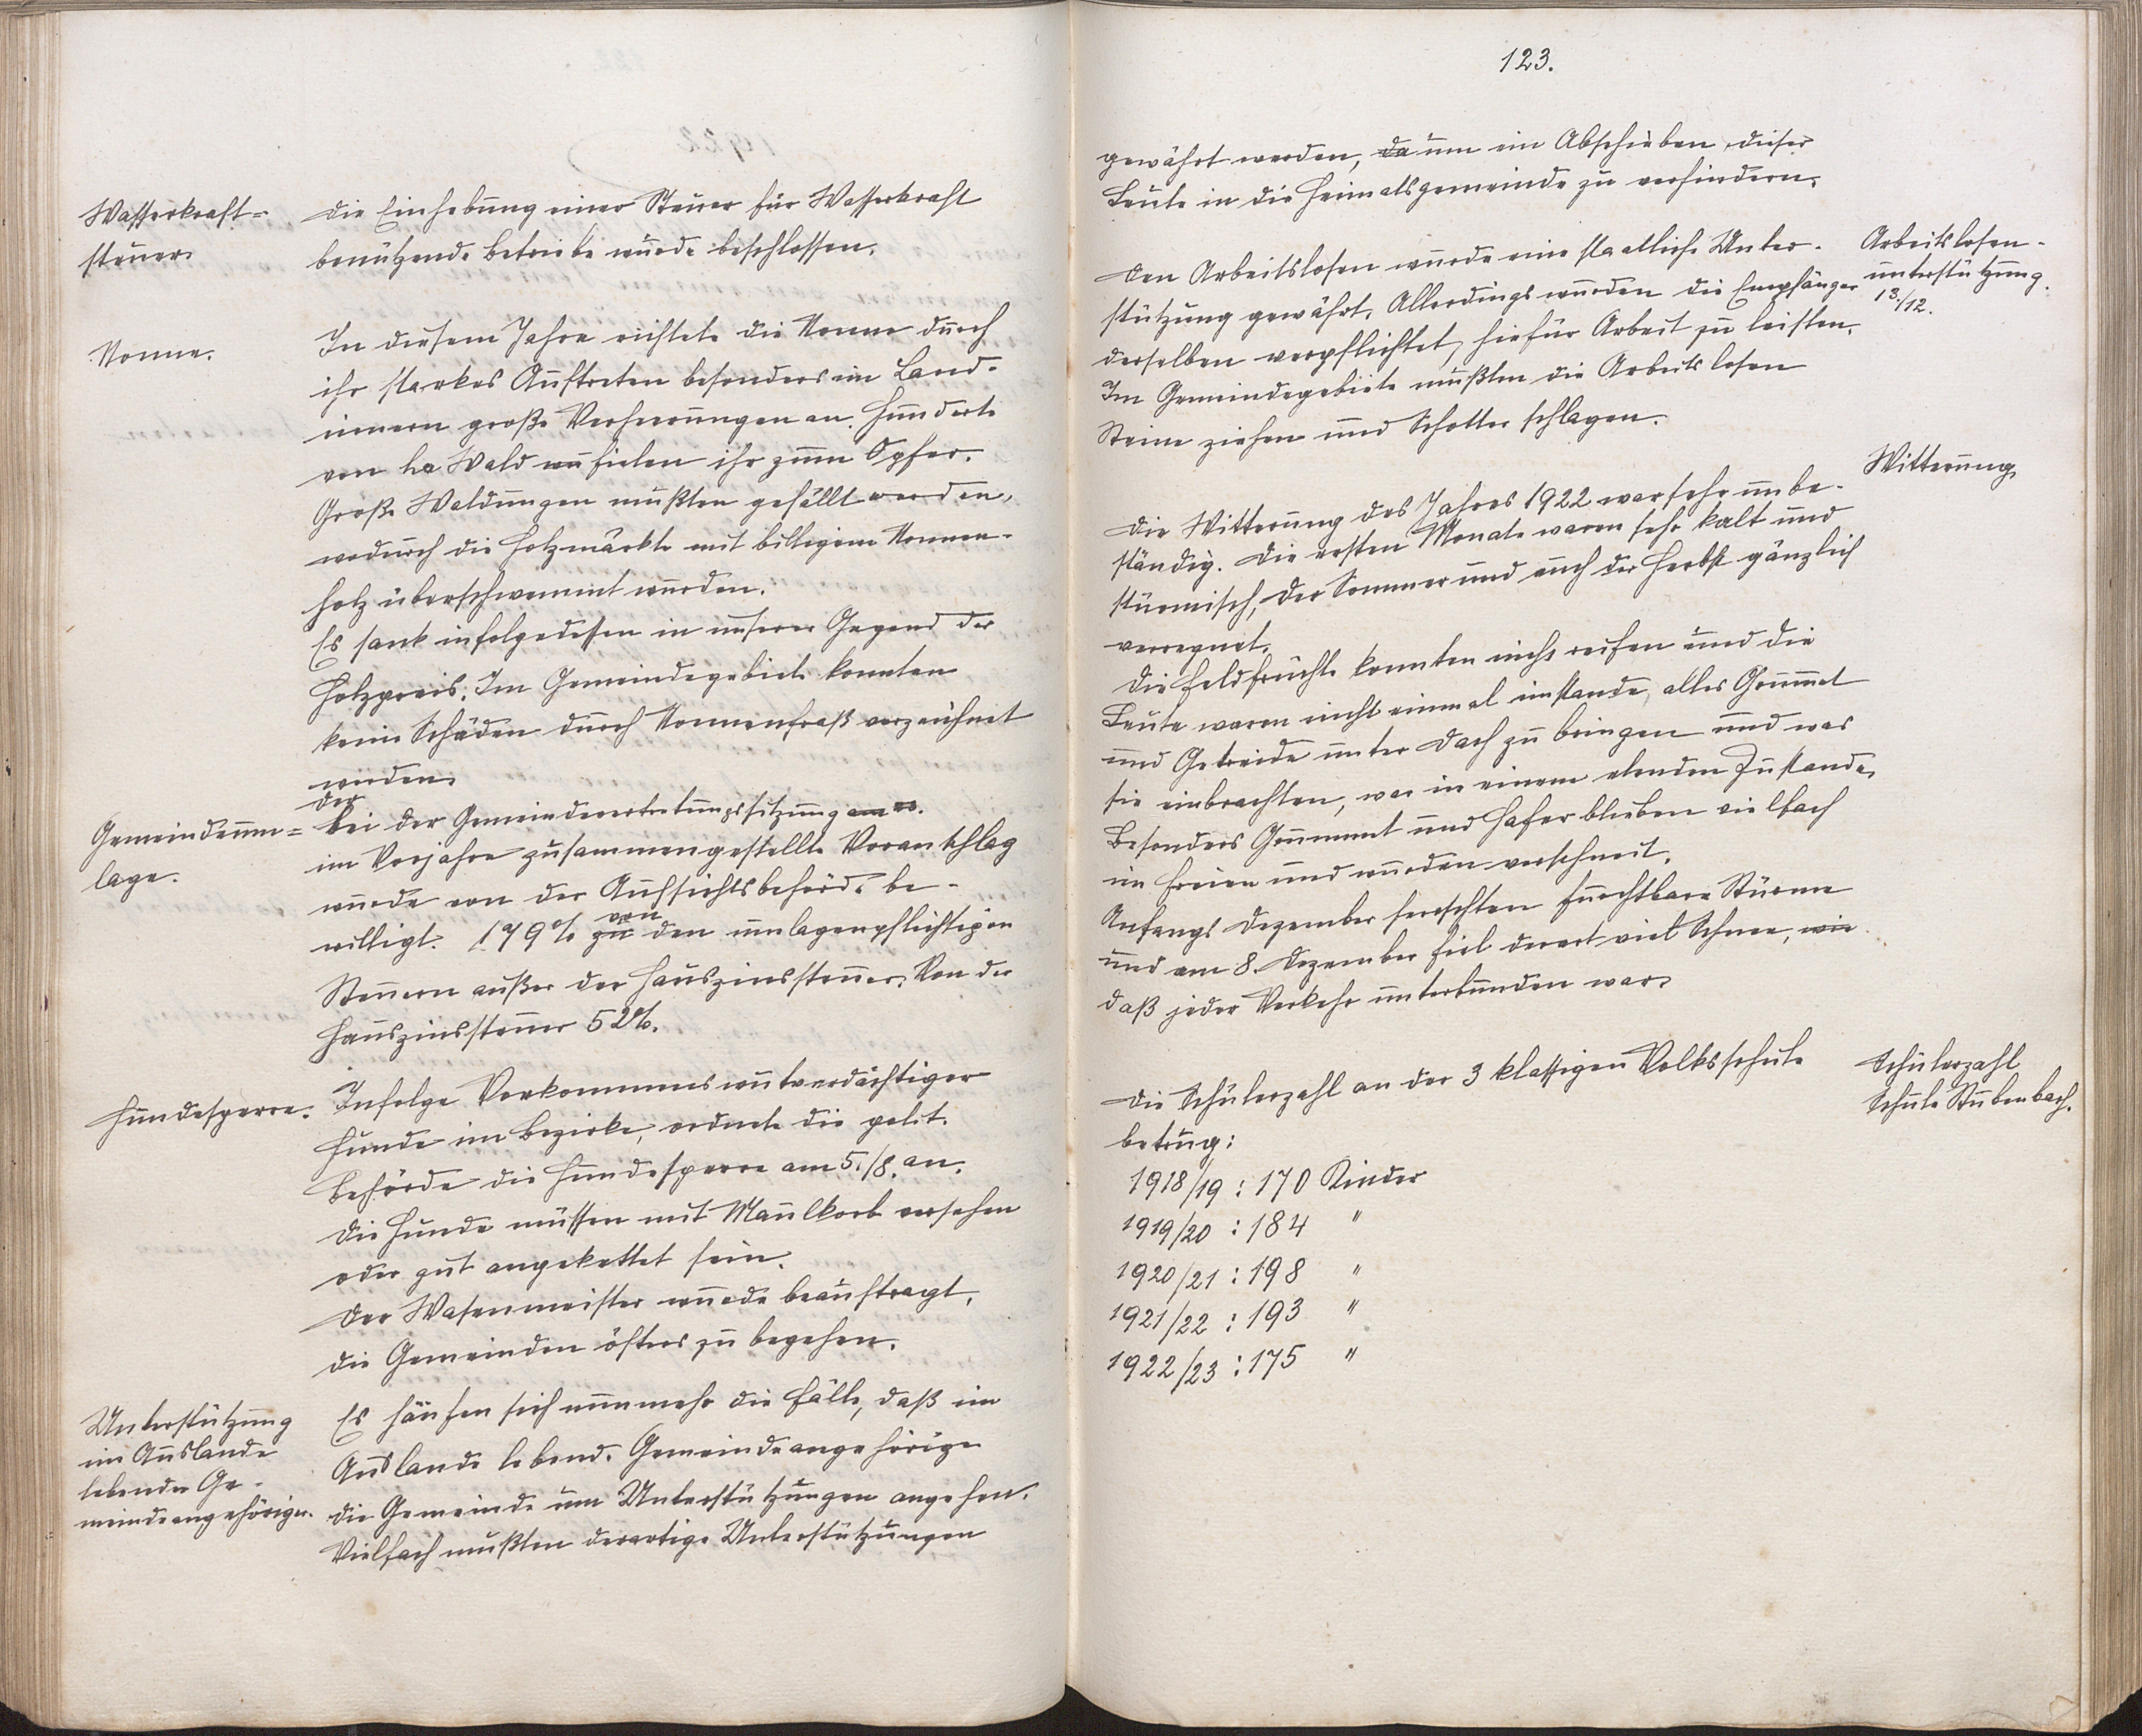 Wasserkraft=
steuer.
Die Einhebung einer Steuer für Wasserkraft
benützende Betriebe wurde beschlossen.
Nonne.
In diesem Jahre richtete die Nonne durch
ihr starkes Auftreten besonders im Land-
innern große Verheerungen an. Hunderte
von ha Wald wu fielen ihr zum Opfer.
Große Waldungen mußten gefällt werden,
wodurch die Holzmärkte mit billigem Nonnen-
holz überschwemmt wurden.
Es sank infolgedessen in unserer Gegend der
Holzpreis. Im Gemeindegebiete konnten
keine Schäden durch Nonnenfraß verzeichnet
werden.
Gemeindeum=
lage.
Der
Bei der Gemeindevertretungssitzung am
im Vorjahre zusammengestellte Voranschlag
wurde von der Aufsichtsbehörde be-
willigt. 179% zu von den umlagenpflichtigen
Steuern außer der Hauszinssteuer. Von der
Hauszinssteuer 52%.
Hundesperre.
Infolge Vorkommens wutverdächtiger
Hunde im Bezirke, ordnete die polit.
Behörde die Hundesperre am 5./8. an.
Die Hunde müssen mit Maulkorb versehen
oder gut angekettet sein.
Der Wasenmeister wurde beauftragt,
die Gemeinden öfters zu begehen.
Unterstützung
im Auslande
lebender Ge-
meindeangehöriger.
Es häufen sich nunmehr die Fälle, daß im
Auslande lebende Gemeindeangehörige
die Gemeinde um Unterstützungen angehen.
Vielfach mußten derartige Unterstützungen
123.
gewährt werden, da um ein Abschieben dieser
Leute in die Heimatsgemeinde zu verhindern.
Arbeitslosen-
unterstützung.
13./12.
Den Arbeitslosen wurde eine staatliche Unter-
stützung gewährt. Allerdings wurden die Empfänger
derselben verpflichtet, hiefür Arbeit zu leisten.
Im Gemeindegebiete mußten die Arbeitslosen
Steine ziehen und Schotter schlagen.
Witterung
Die Witterung des Jahres 1922 war sehr unbe-
ständig. Die ersten Monate waren sehr kalt und
stürmisch, der Sommer und auch der Herbst gänzlich
verregnet.
Die Feldfrüchte konnten nicht reifen und die
Leute waren nicht einmal imstande, alles Grummet
und Getreide unter Dach zu bringen und was
sie einbrachten, war in einem elenden Zustande.
Besonders Grummet und Hafer blieben vielfach
im Freien und wurden verschneit.
Anfangs Dezember herrschten furchtbare Stürme
und am 8. Dezember fiel derart viel Schnee, wie
daß jeder Verkehr unterbunden war.
Schülerzahl
Schule Stubenbach.
Die Schülerzahl an der 3 klassigen Volksschule
betrug:
1918/19 : 170 Kinder
1919/20 : 184 "
1920/21 : 198 "
1921/22 : 193 "
1922/23 : 175 "